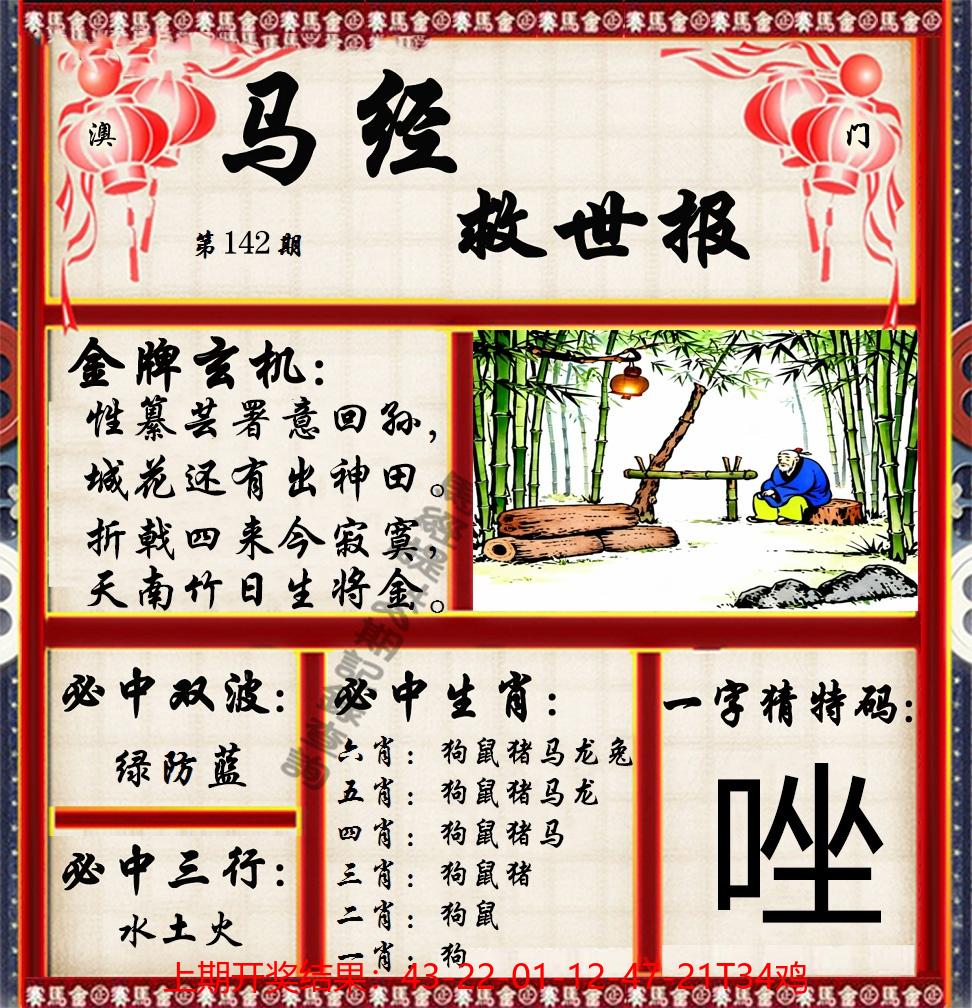 澳
门
马经
救世报
第142期
金牌玄机：
性纂芸署意回孙，
城花还有出神田。
折戟四来今寂寞，
天南竹日生将金。
必中双波：
绿防蓝
必中三行：
水土火
必中生肖：
六肖：狗鼠猪马龙兔
五肖：狗鼠猪马龙
四肖：狗鼠猪马
三肖：狗鼠猪
二肖：狗鼠
一肖：狗
一字猜特码：
唑
上期开奖结果：43-22-01-12-47-21T34鸡